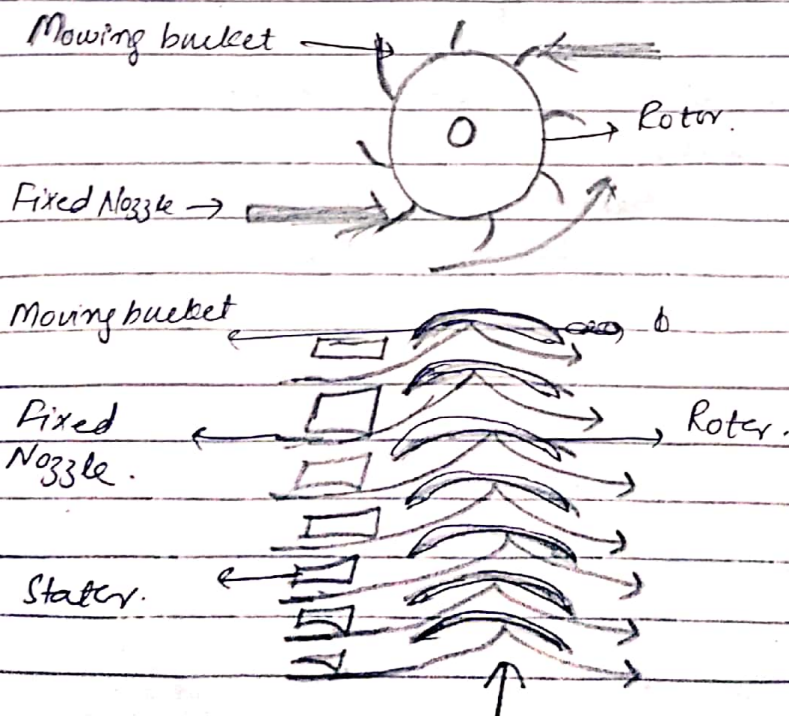 Mowing bucket
Rotor.
Fixed Nozzle
Moving bucket
Fixed
Nozzle.
Roter.
Stater.